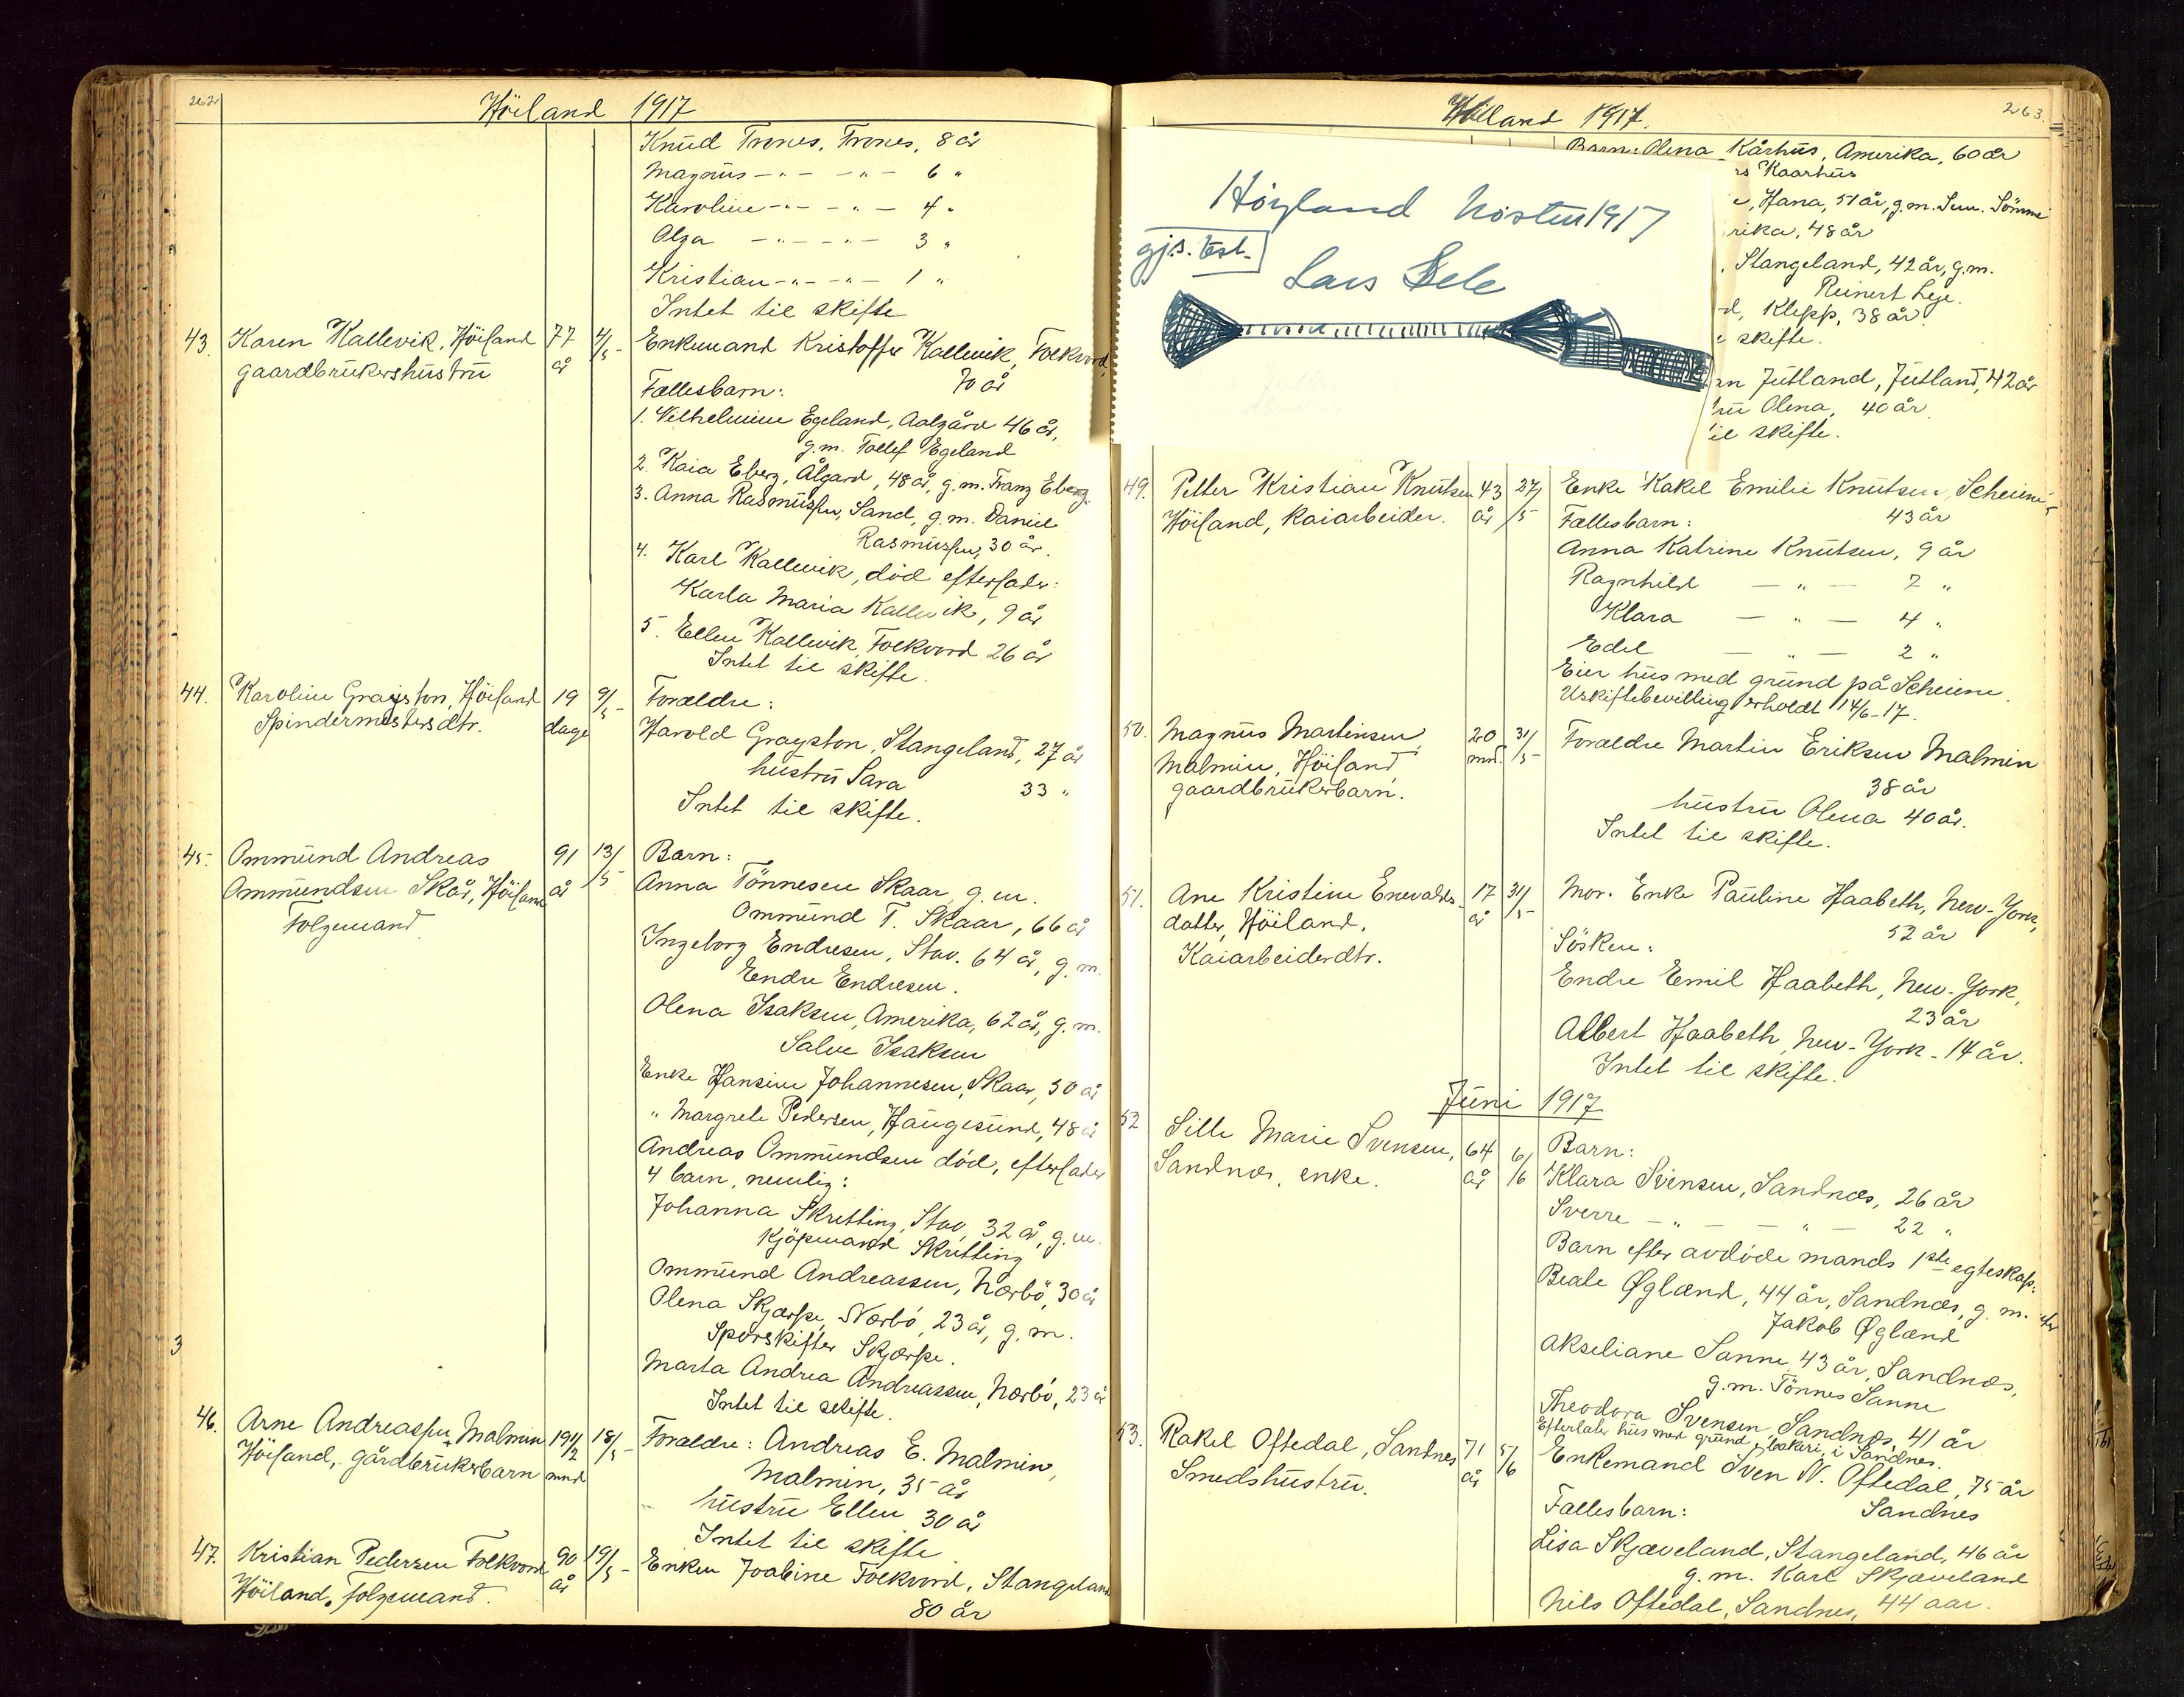 262
Höiland 1917
Knud Trones, Trones, 8 år
Magnus -"- -"- 6 "
Karoline -"- -"- 4 "
Olga -"- -"- 3 "
Kristian -"- -"- 1 "
Intet til skifte
43. Karen Kallevik, Höiland 77 4/5 Enkemand Kristoffer Kallevik, Folkvord,
gaardbrukershustru år 70 år
Fællesbarn:
1. Vilhelmine Egeland, Aalgård 46 år,
g.m. Tollef Egeland
2. Kaia Eberg, Ålgard, 48 år, g.m. Franz Eberg.
3. Anna Rasmussen, Sand, g.m. Daniel
Rasmussen, 30 år.
4. Karl Kallevik, död efterlader:
Karla Maria Kallevik, 9 år
5. Ellen Kallevik, Folkvord 26 år
Intet til skifte.
44. Karoline Grayston, Höiland 19 9/5 Forældre:
Spindermestersdtr. dage Harold Grayston, Stangeland, 27 år
hustru Sara 33 "
Intet til skifte.
45. Ommund Andreas 91 13/5 Barn:
Ommundsen Skår, Höiland år Anna Tönnesen Skaar g.m.
Folgemand Ommund T. Skaar, 66 år
Ingeborg Endresen, Stav. 64 år, g.m.
Endre Endresen.
Olena Isaksen, Amerika, 62 år, g.m.
Salve Isaksen
Enke Hansine Johannesen, Skaar, 50 år
" Margrete Pedersen, Haugesund, 48 år
Andreas Ommundsen död, efterlader
4 barn, nemlig:
Johanna Skretting, Stav, 32 år, g.m.
Kjöpmand Skretting
Ommund Andreassen, Nærbö, 30 år
Olena Skjærpe, Nærbö, 23 år, g.m.
Sporskifter Skjærpe.
Marta Andrea Andreassen, Nærbö, 23 år
Intet til skifte.
46. Arne Andreassen Malmin 19 1/2 18/5 Forældre: Andreas E. Malmin,
Höiland, gårdbrukerbarn mnd Malmin, 35 år
hustru Ellen 30 år
Intet til skifte
47. Kristian Pedersen Folkvord 90 19/5 Enken Joabine Folkvord, Stangeland
Höiland, folgemand. år 80 år
3
Höiland 1917.
263.
Barn: Olena Kårhus, Amerika, 60 år
rs Kaarhus
e, Hana, 51 år, g.m. Sömme
rika, 48 år
, Stangeland, 42 år, g.m.
Reinert Lye.
d, Klepp, 38 år
e skifte.
an Jutland, Jutland, 42 år
ru Olena, 40 år
til skifte.
Höyland Hösten 1917
gj.s. test.
Lars Sele
49. Petter Kristian Knutsen 43 27/5 Enke Rakel Emilie Knutsen, Scheiene
Höiland, kaiarbeider. år 43 år
Fællesbarn:
Anna Katrine Knutsen, 9 år
Ragnhild - " - 7 "
Klara - " - 4 "
Edel - " - 2 "
Eier hus med grund på Scheiene.
Uskiftebevilling erholdt 14/6-17.
50. Magnus Martinsen 20 31/5 Forældre Martin Eriksen Malmin
Malmin, Höiland mnd. 38 år
gaardbrukerbarn. hustru Olena 40 år.
Intet til skifte.
51. Ane Kristine Enevalds- 17 31/5 Mor: Enke Pauline Haabeth, New-York,
datter, Höiland, år 52 år
Kaiarbeiderdtr. Sösken:
Endre Emil Haabeth, New-York,
23 år
Albert Haabeth, New-York - 14 år.
Intet til skifte.
Juni 1917
52 Sille Marie Svensen, 64 6/6 Barn:
Sandnæs, enke. år Klara Svensen, Sandnæs, 26 år
Sverre - " - - " - 22 "
Barn efter avdöde mands 1ste egteskap:
Beate Øgland, 44 år, Sandnæs, g.m.
Jakob Øgland
Akseliane Sanne, 43 år, Sandnæs,
g.m. Tönnes Sanne
Theodora Svensen, Sandnæs, 41 år
Efterlater hus med grund, bakeri, i Sandnes.
53. Rakel Oftedal, Sandnes 71 5/6 Enkemand Sven N. Oftedal, 75 år
Smedshustru. år Sandnes
Fællesbarn:
Lisa Skjæveland, Stangeland, 46 år
g.m. Karl Skjæveland
Nils Oftedal, Sandnes, 44 aar.